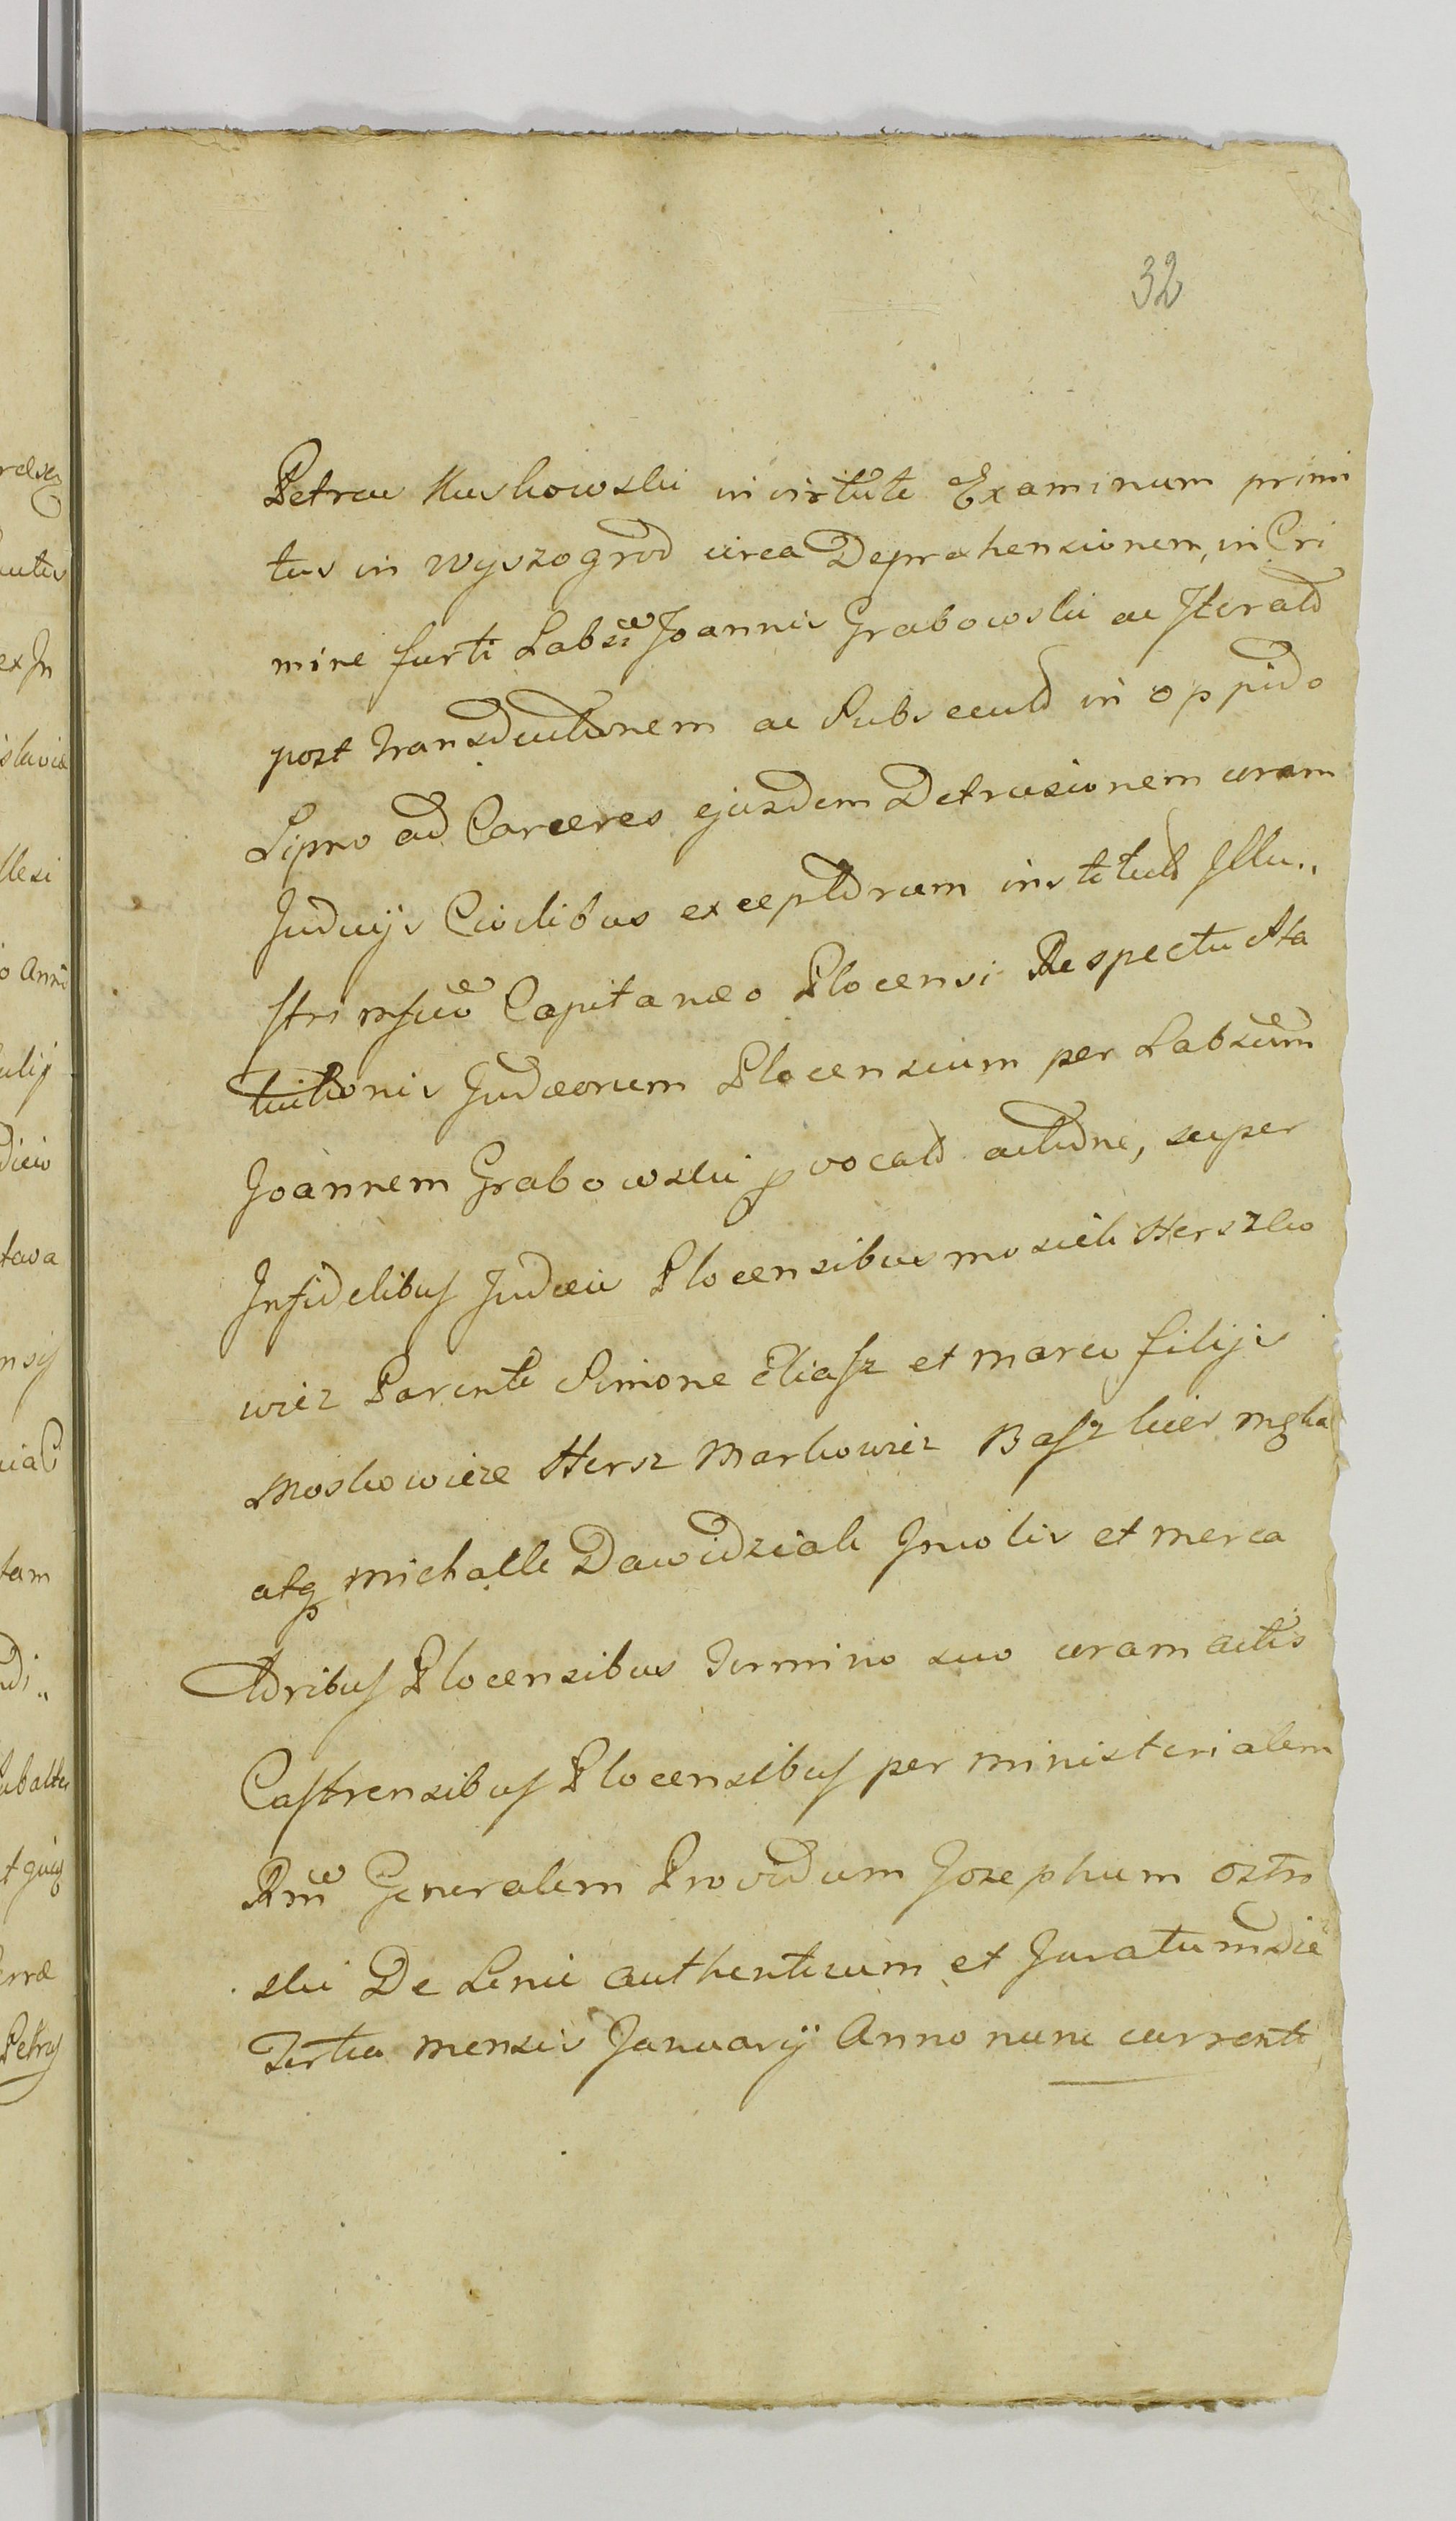 32
Petrus Muskowski in virtute Examinum primi
tus in Wyszogrod circa Deprahensionem, in Cri
mine furti Labsi Joannis Grabowski ac Iterato
post Transductionem ac Subsecuto in oppido
Lipno ad Carceres ejusdem Detrusionem coram
Judicijs Civilibus exceptorum instituto Illu„
stri Capitaneo Plocensi Respectu Sta
tuitionis Judæorum Plocensium per Labsum
Joannem Grabowski vocato actione, super
Infidelibus Judæis Plocensibus Mosiek Herszko
wicz Parente Simone Eliasz et Marco filijs
Moskowicze Hersz Markowicz Basz
atq Michalk Dawidziak Incolis et merca
toribus Plocensibus Termino suo coram actis
Castrensibus Plocensibus per Ministerialem
Generalem Providum Josephum Ostro
ski De Lenie authenticum et Juratum die
Tertia mensis Januarij Anno nunc currenti